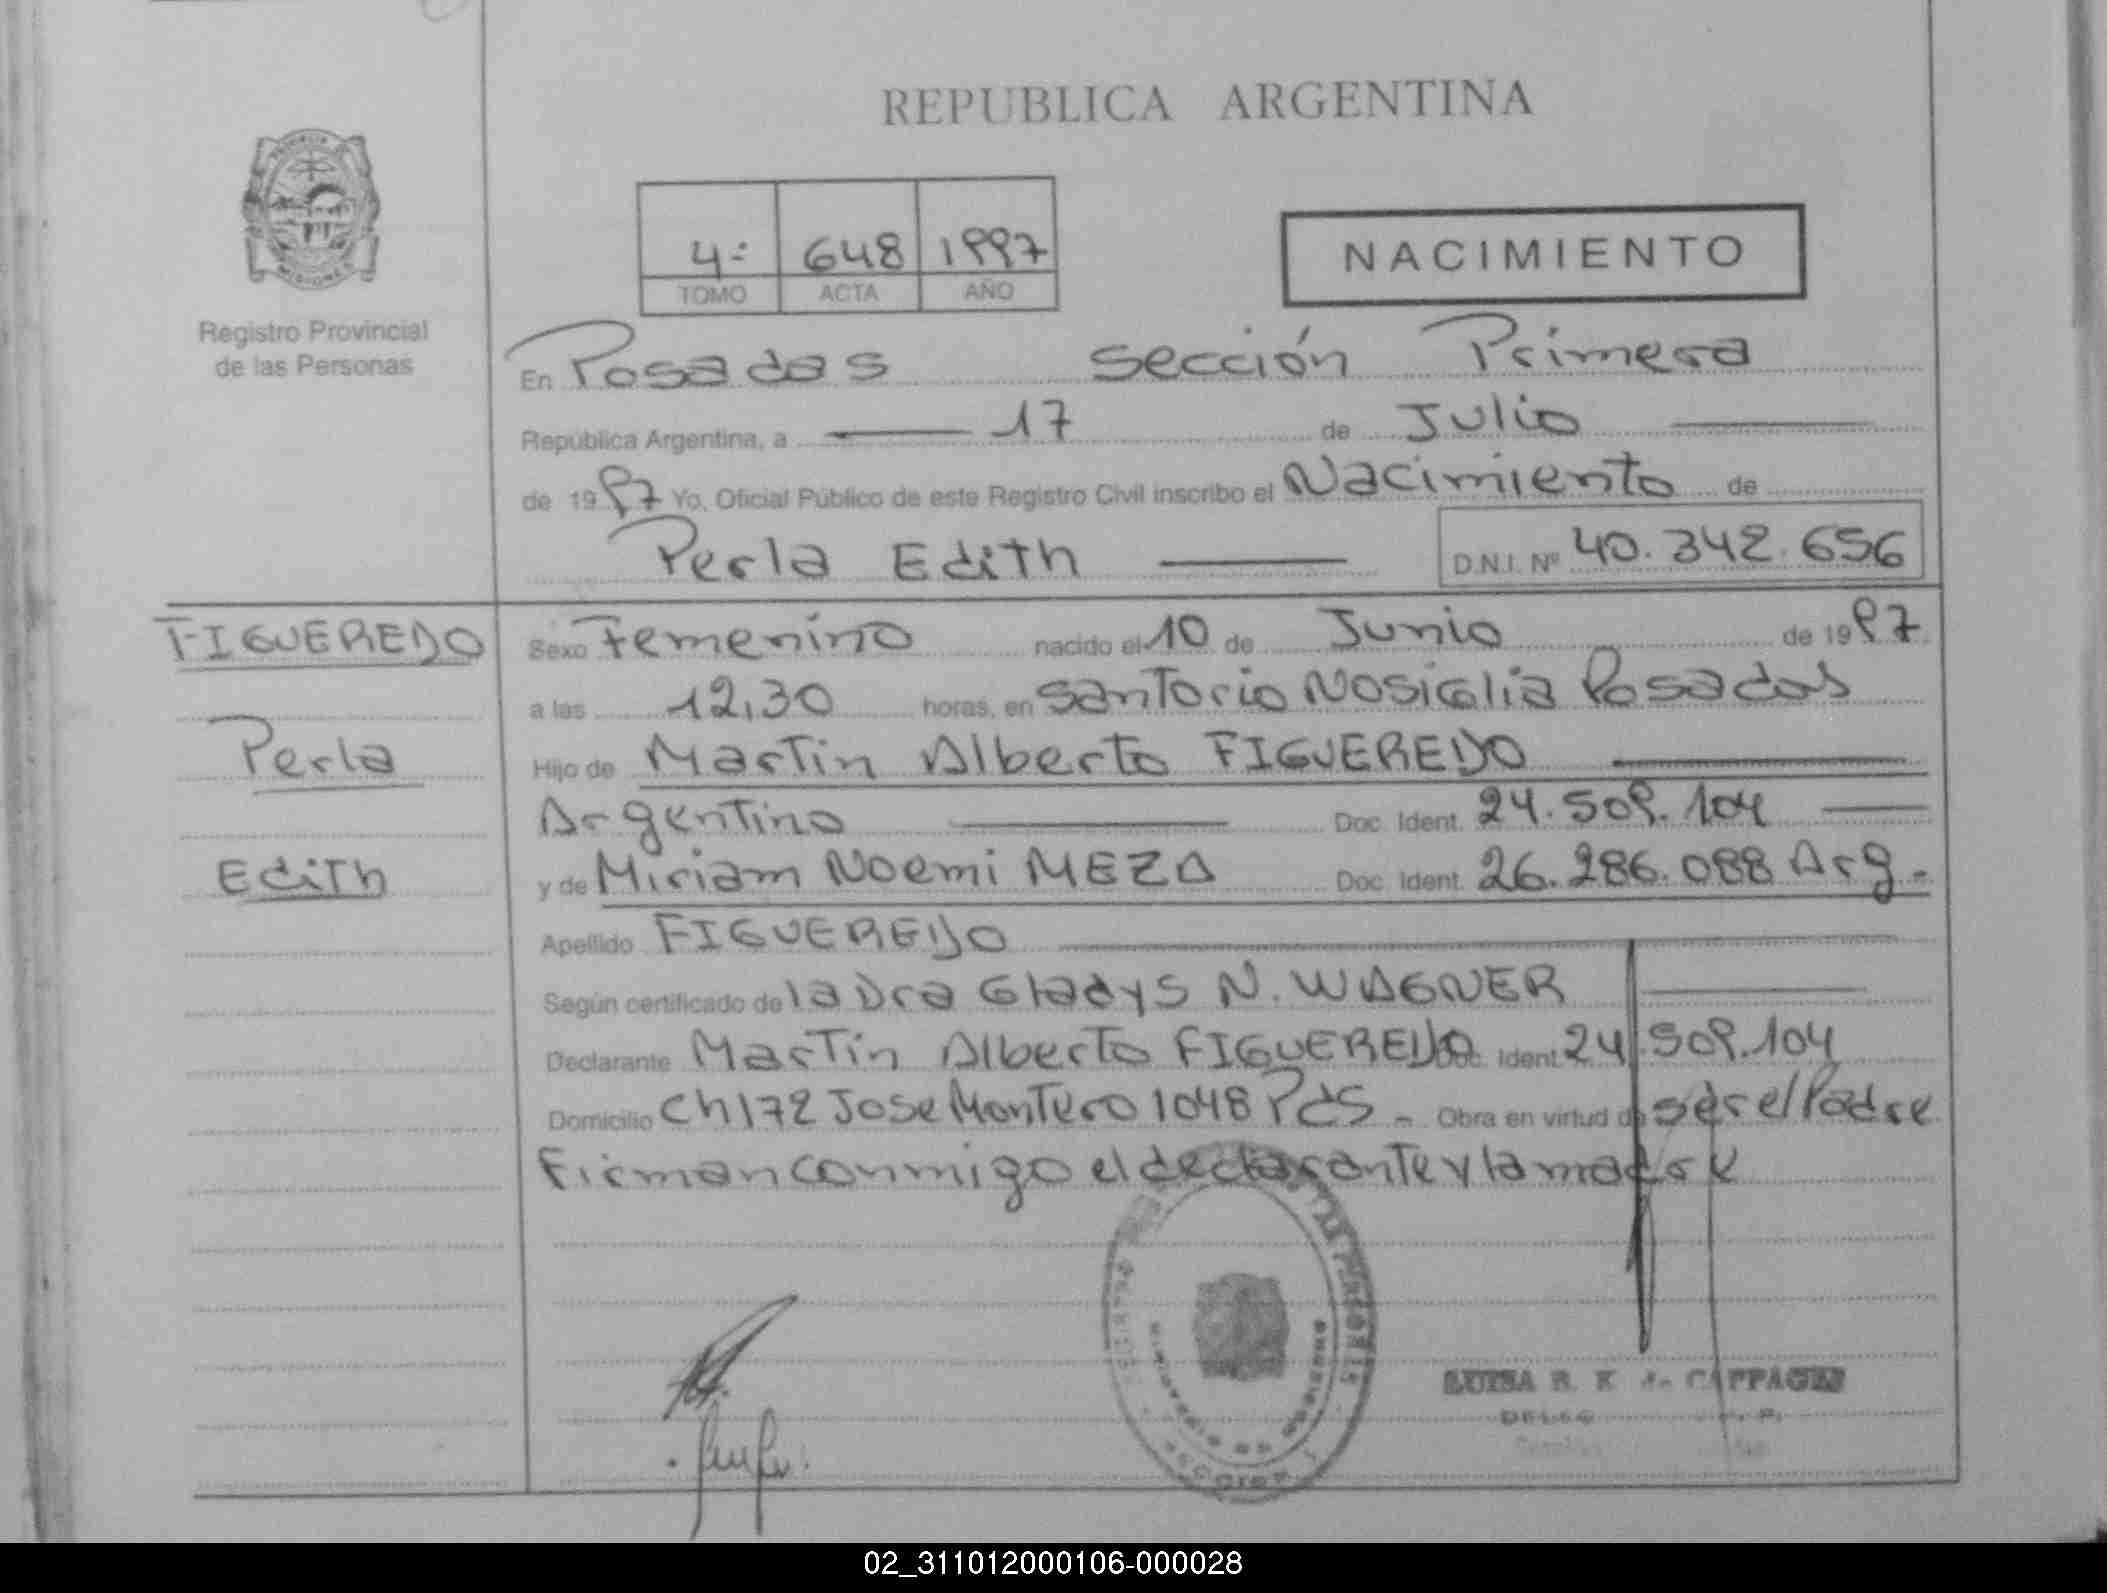 REPUBLICA ARGENTINA
4º 648 1997
TOMO ACTA AÑO
NACIMIENTO
MISIONES
Registro Provincial
de las Personas
En Posadas sección Primera
República Argentina, a 17 de Julio
de 1997 Yo, Oficial Público de este Registro Civil inscribo el Nacimiento de
Perla Edith D.N.I. Nº 40.342.656
FIGUEREDO
Perla
Edith
Sexo Femenino nacido el 10 de Junio de 1997
a las 12,30 horas, en Santorio Nosiglia Posadas
Hijo de Martin Alberto FIGUEREDO
Argentino Doc. Ident. 24.509.104
y de Miriam Noemi MEZA Doc. Ident. 26.286.088 Arg.
Apellido FIGUEREDO
Según certificado de la Dra Gladys N. WAGNER
Declarante Martin Alberto FIGUEREDO Doc. Ident. 24.509.104
Domicilio Ch 172 Jose Montero 1048 Pdas. Obra en virtud de ser el Padre
Firman conmigo el declarante y la madre
LUISA R. K de
02_311012000106-000028